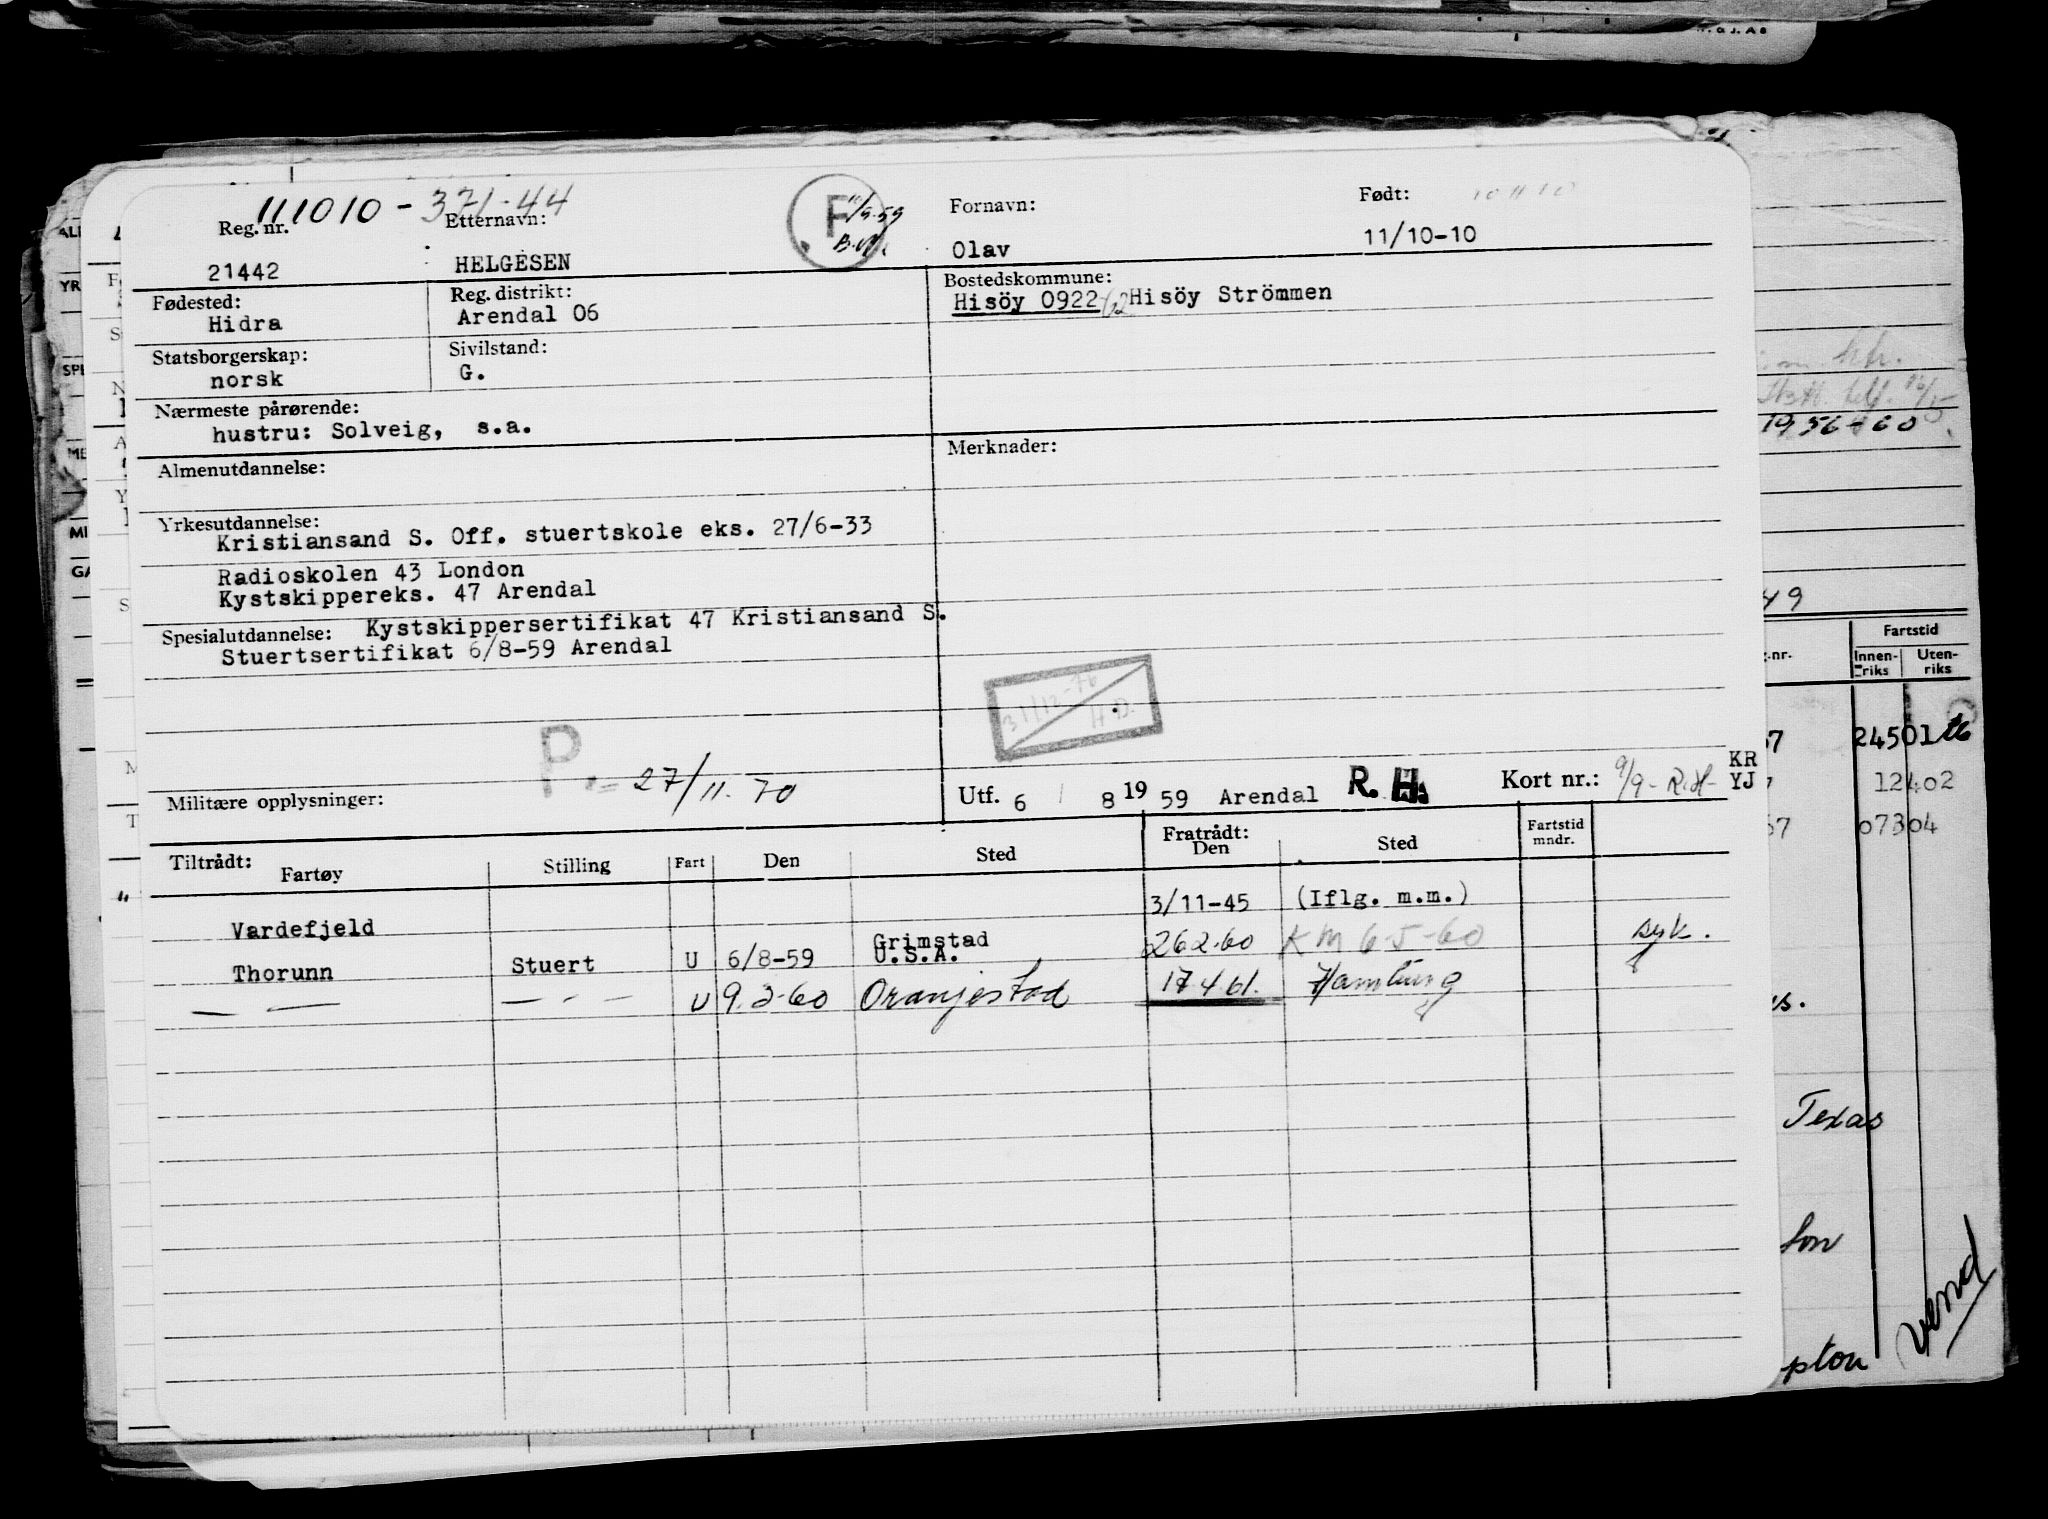 111010-371-44
Reg. nr. Etternavn: F 11/9-59 Fornavn: Født:
21442 HELGESEN Olav 11/10-10
Fødested: Reg. distrikt: Bostedskommune:
Hidra Arendal 06 Hisöy 0922 Hisöy Strömmen
Statsborgerskap: Sivilstand:
norsk G.
Nærmeste pårørende:
hustru: Solveig, s.a.
Almenutdannelse: Merknader:
Yrkesutdannelse:
Kristiansand S. Off. stuertskole eks. 27/6-33
Radioskolen 43 London
Kystskippereks. 47 Arendal
Spesialutdannelse: Kystskippersertifikat 47 Kristiansand S.
Stuertsertifikat 6/8-59 Arendal
31/12-76
H.D.
P. = 27/11.70
Militære opplysninger: Utf. 6 / 8 19 59 Arendal R. H. Kort nr.: 9/9- R.H-
KR
YJ
Tiltrådt: Fratrådt:
Fartøy Stilling Fart Den Sted Den Sted Fartstid mndr.
Vardefjeld 3/11-45 (Iflg. m.m.)
Thorunn Stuert U 6/8-59 Grimstad U.S.A. 26.2.60 KM 6-5-60 syk.
— — — " — U 9.3-60 Oranjestad 17.4.61. Hamburg
1956-60
49
Fartstid
Innenriks Utenriks
24501
12402
07304
Texas
pton
vend